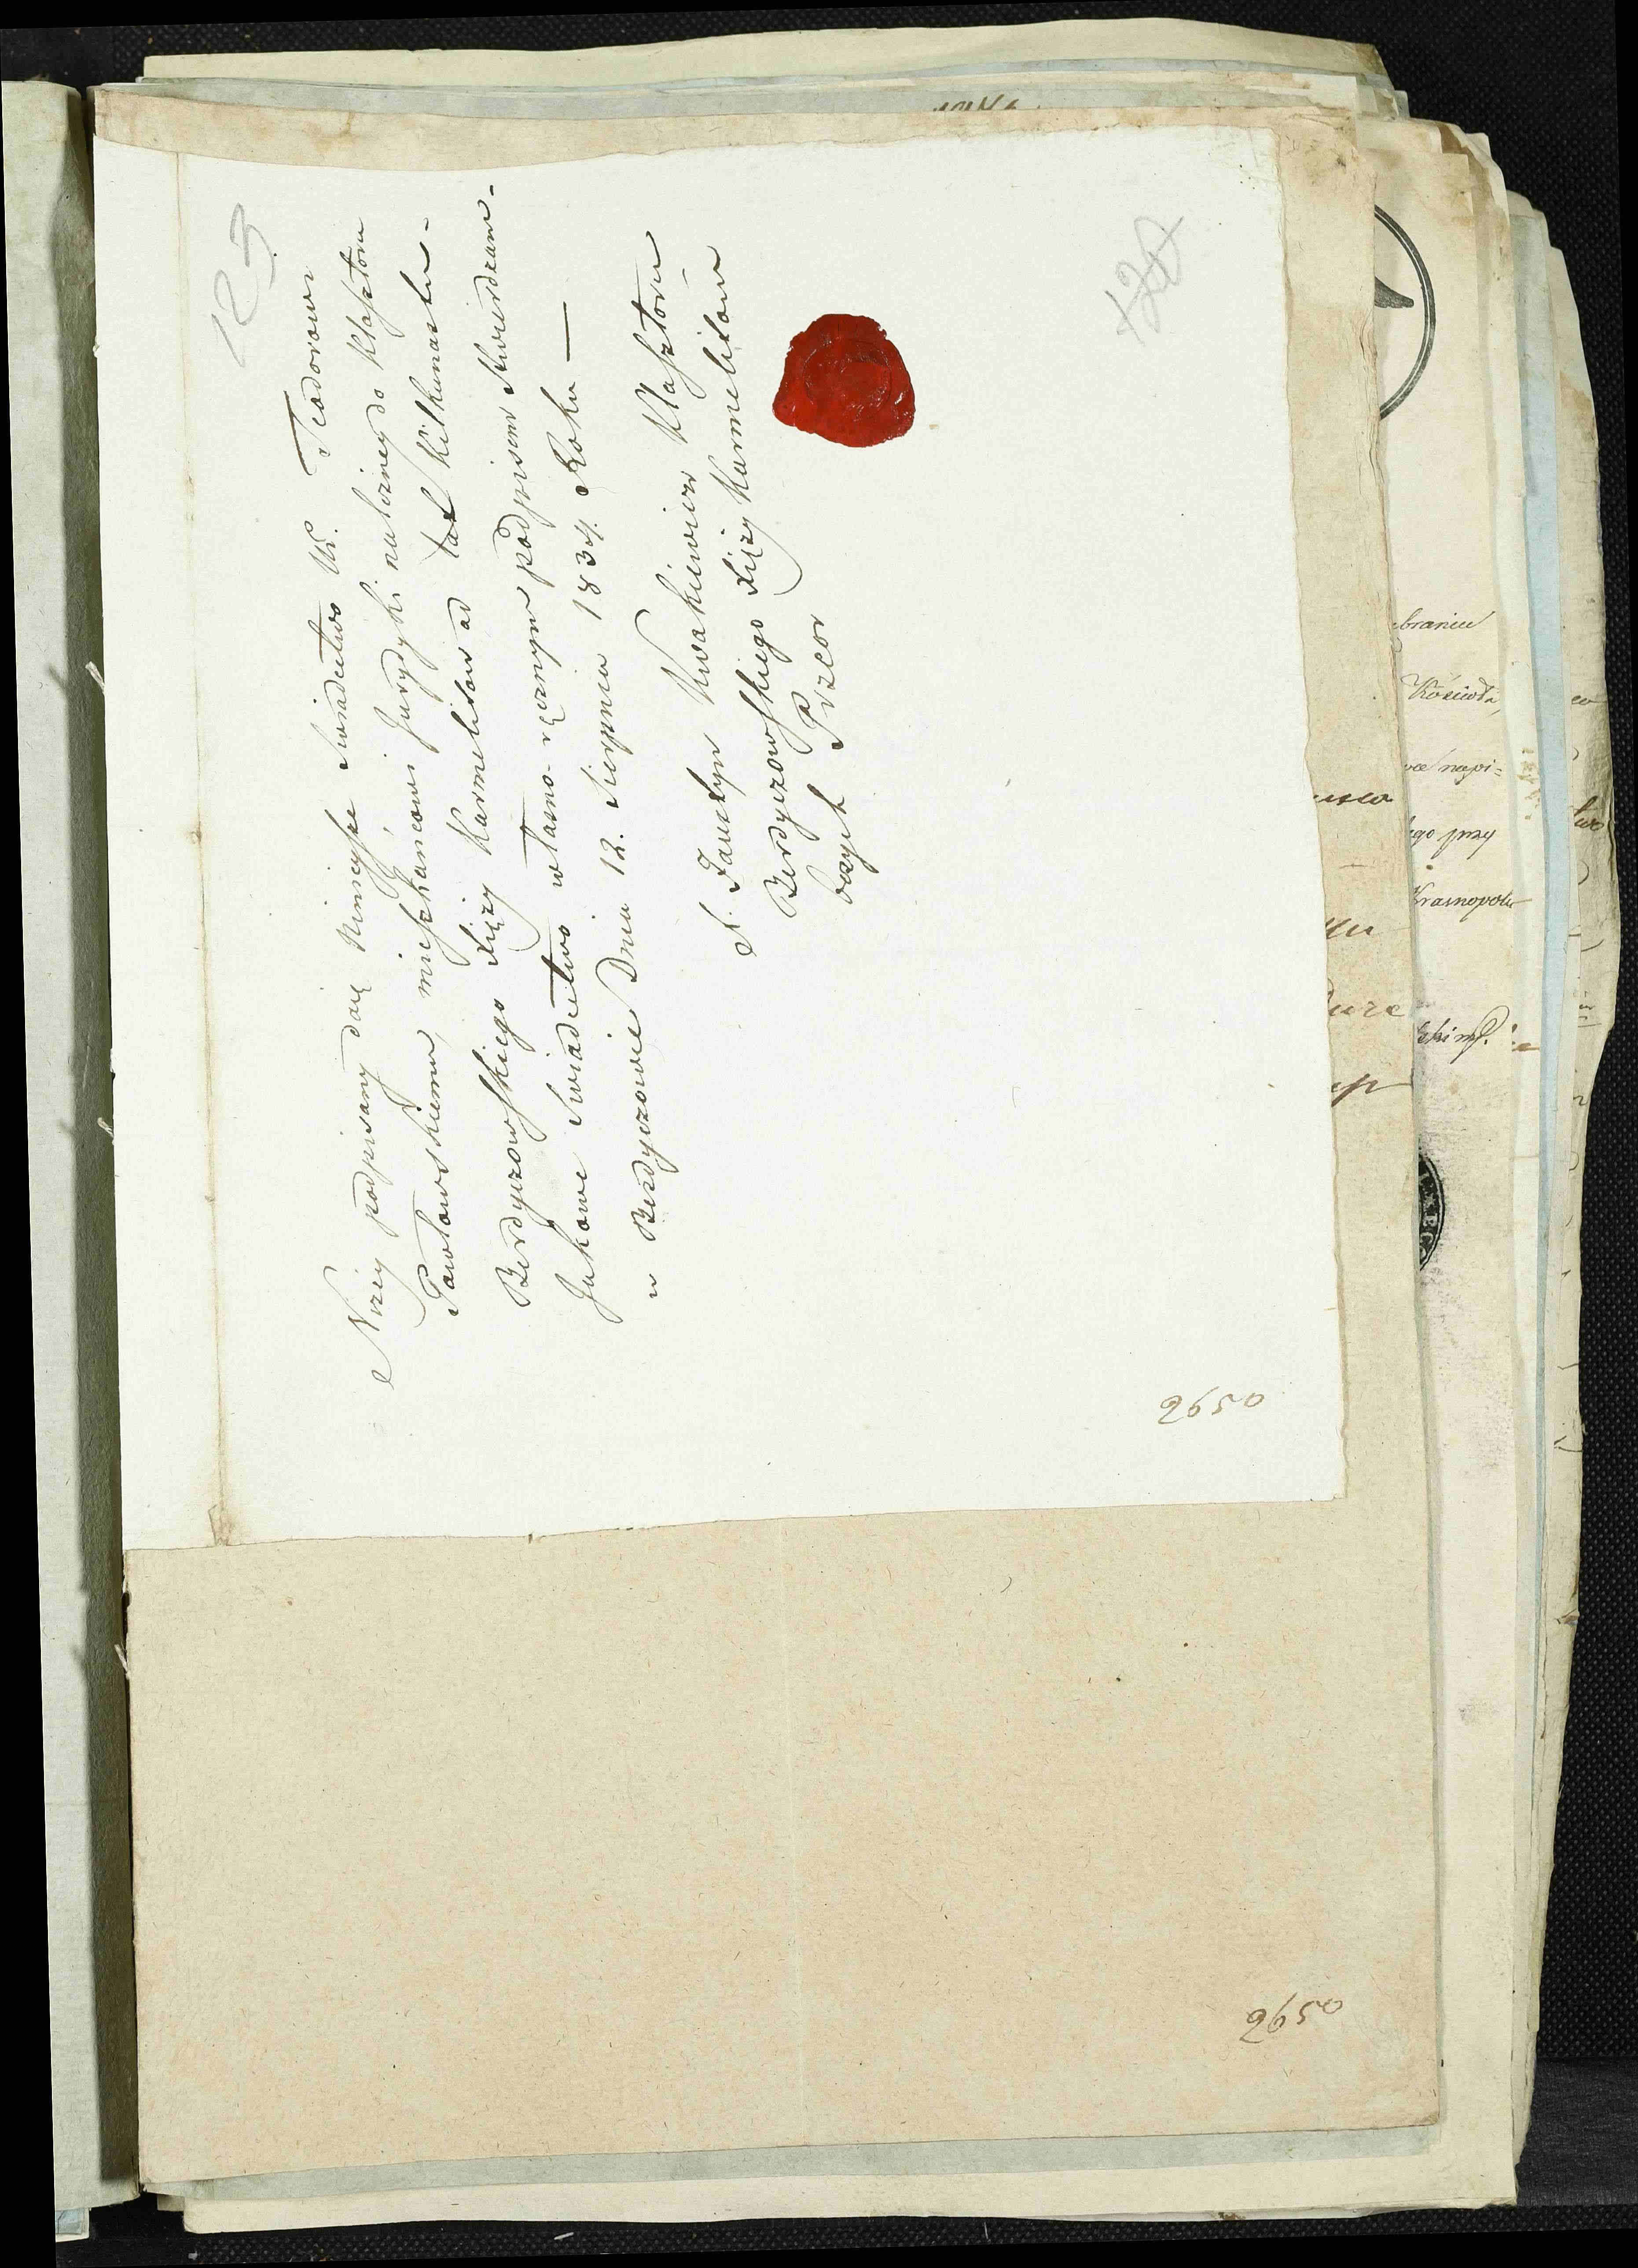 123
Niżey podpisany daię Ninieysze Swiadectwo W. Teodorowi
Pawłowskiemu, mieszkańcowi Jurydyki należney do Klasztoru
Berdyczowskiego Xięży Karmelitow od lat kilkunastu -
Jakowe Swiadectwo własno-ręcznym podpisem stwierdzam -
w Berdyczowie Dnia 12. Sierpnia 1834. Roku —
X. Faustyn Kwakiewicz Klasztoru
Berdyczowskiego Xięży Karmelitow
bosych Przeor
2650
2650
braniu
Kościoła,
napi=
ego przy
Krasnopolu